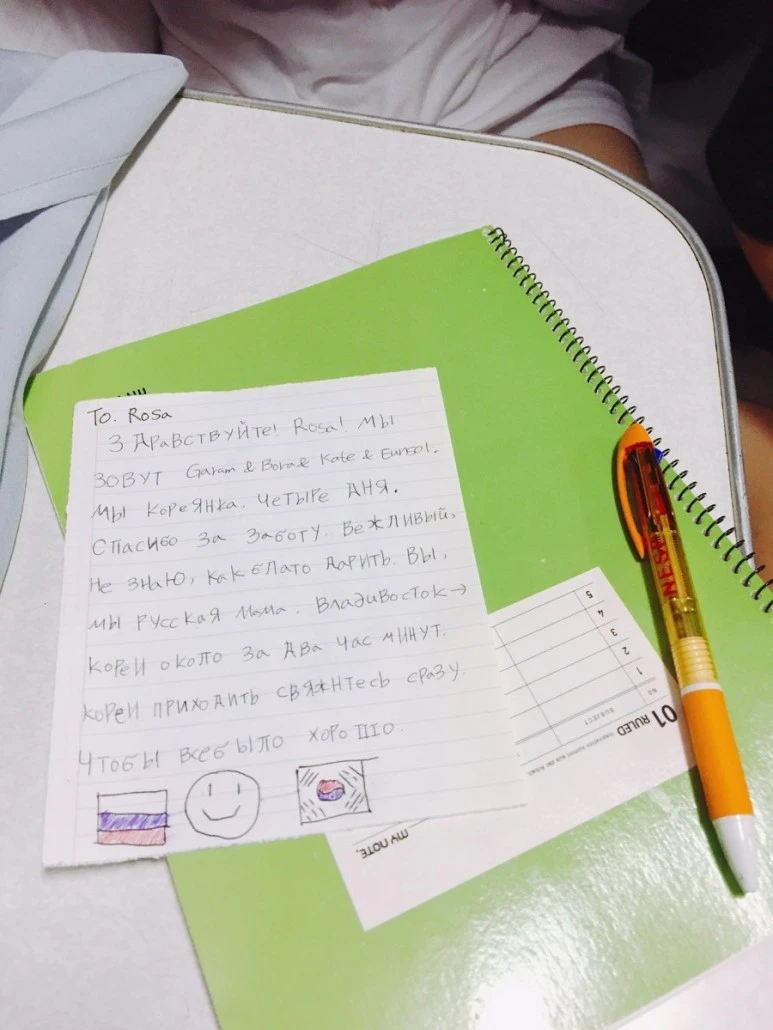 To. Rosa
ЗДРАВСТВУЙТЕ! Rosa! МЫ
ЗОВУТ Garam & Bora & Kate & Eunsol.
МЫ КОРЕЯНКА. ЧЕТЫРЕ ДНЯ.
СПАСИБО ЗА ЗАБОТУ. ВЕЖЛИВЫЙ,
НЕ ЗНАЮ, КАК БЛАГО ДАРИТЬ. ВЫ,
МЫ РУССКАЯ МАМА. ВЛАДИВОСТОК→
КОРЕЙ ОКОЛО ЗА ДВА ЧАС МИНУТ.
КОРЕЙ ПРИХОДИТЬ СВЯЖНТЕСЬ СРАЗУ.
ЧТОБЫ ВСЕ БЫЛО ХОРОШО.
NO. SUBJECT
1
2
3
4
5
01 RULED
MY NOTE.